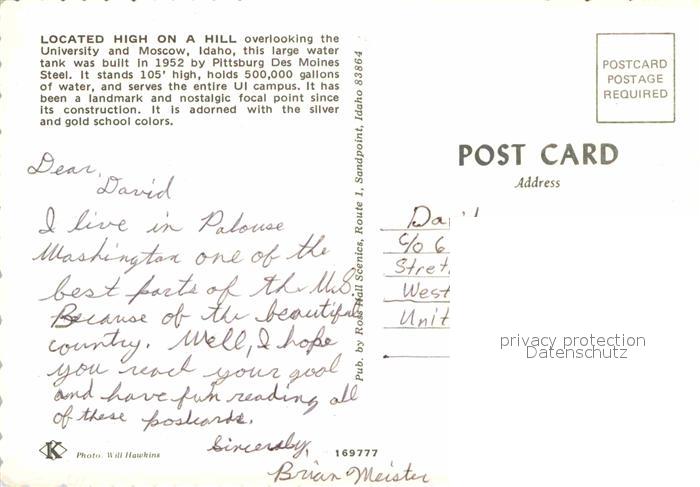 LOCATED HIGH ON A HILL overlooking the
University and Moscow, Idaho, this large water
tank was built in 1952 by Pittsburg Des Moines
Steel. It stands 105' high, holds 500,000 gallons
of water, and serves the entire UI campus. It has
been a landmark and nostalgic focal point since
its construction. It is adorned with the silver
and gold school colors.
Dear,
David
I live in Palouse
Washington one of the
best parts of the U.S.
Because of the beautiful
country. Well, I hope
you reach your goal
and have fun reading all
of these postcards.
Sincerely,
Brian Meister
Photo: Will Hawkins
169777
Pub. by Ross Hall Scenics, Route 1, Sandpoint, Idaho 83864
POSTCARD
POSTAGE
REQUIRED
POST CARD
Address
Da
C/O 6
Stret
West
Unit
privacy protection
Datenschutz